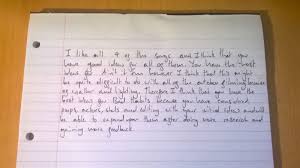 I like all 4 of the songs and I think that you
have good ideas for all of them. You have the best
ideas for Ain't it fun however I think that this might
be quite difficult to do with all of the outdoor filming because
of weather and lighting. Therefore I think that you have the
best ideas for Bad Habits because you have considered
props, actors, shots and editing with your initial ideas and will
be able to expand upon them after doing more research and
gaining more feedback